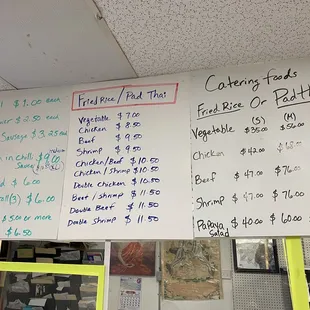 $1.00 each
$2.50 each
Sausage $3.25 each
in chilli $9.00
$6.00
(3) $6.00
$5.00 or more
$6.50
Fried Rice / Pad Thai
Vegetable $7.00
Chicken $8.50
Beef $9.50
Shrimp $9.50
Chicken/Beef $10.50
Chicken/Shrimp $10.50
Double Chicken $10.50
Beef/Shrimp $11.50
Double Beef $11.50
Double Shrimp $11.50
Catering foods
Fried Rice Or Pad Th
(S) (M)
Vegetable $35.00 $56.00
Chicken $42.00
Beef $47.00 $76.00
Shrimp $47.00 $76.00
Papaya Salad $40.00 $60.00